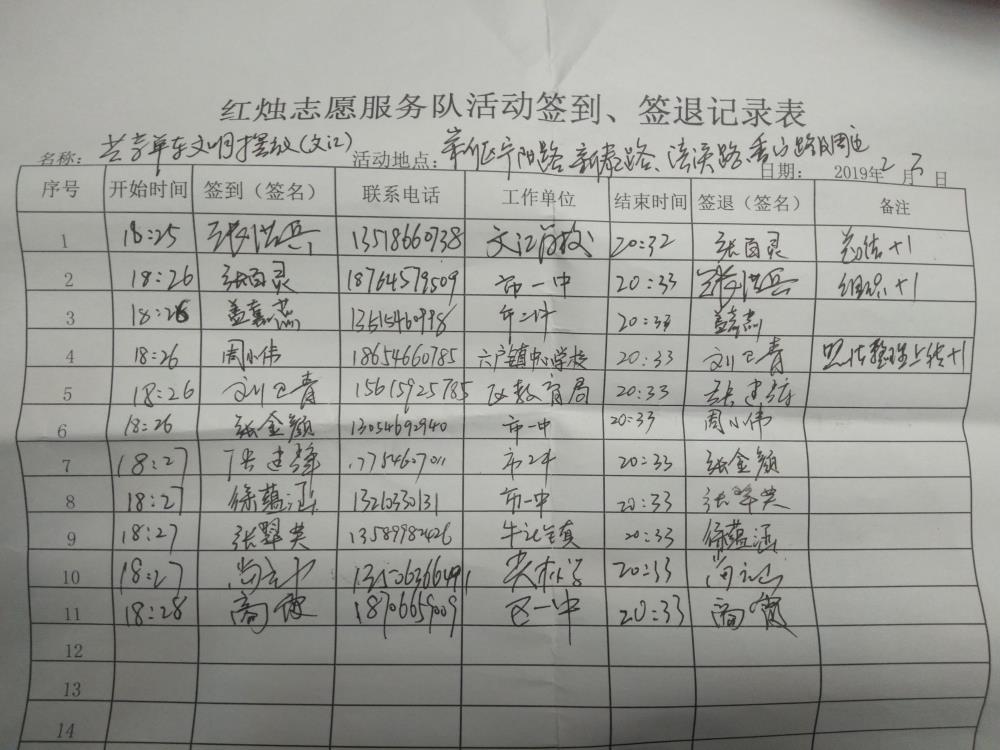 红烛志愿服务队活动签到、签退记录表
名称： 共享单车文明摆放(文汇) 活动地点： 宁阳路 路、涪溪路 香山路周边 日期： 2019年2月3日
序号 开始时间 签到（签名） 联系电话 工作单位 结束时间 签退（签名） 备注
1 18:25 张洪兵 13518660738 文汇 20:32 张百灵 总结+1
2 18:26 张百灵 18764579509 市一中 20:33 张洪兵 组织+1
3 18:26 盖嘉杰 13615460998 20:33 盖嘉杰
4 18:26 周小伟 18654660785 六户镇中心学校 20:33 刘卫青 照片整理上传+1
5 18:26 刘卫青 15615925785 区教育局 20:33 张建
6 18:26 张金颜 13054692940 市一中 20:33 周小伟
7 18:27 张建 17754607011 20:33 张金颜
8 18:27 徐蕴涵 13210330131 市一中 20:33 张翠英
9 18:27 张翠英 13589982426 牛庄镇 20:33 徐蕴涵
10 18:27 尚 20:33 尚
11 18:28 商健 18706659009 区一中 20:33 商健
12
13
14